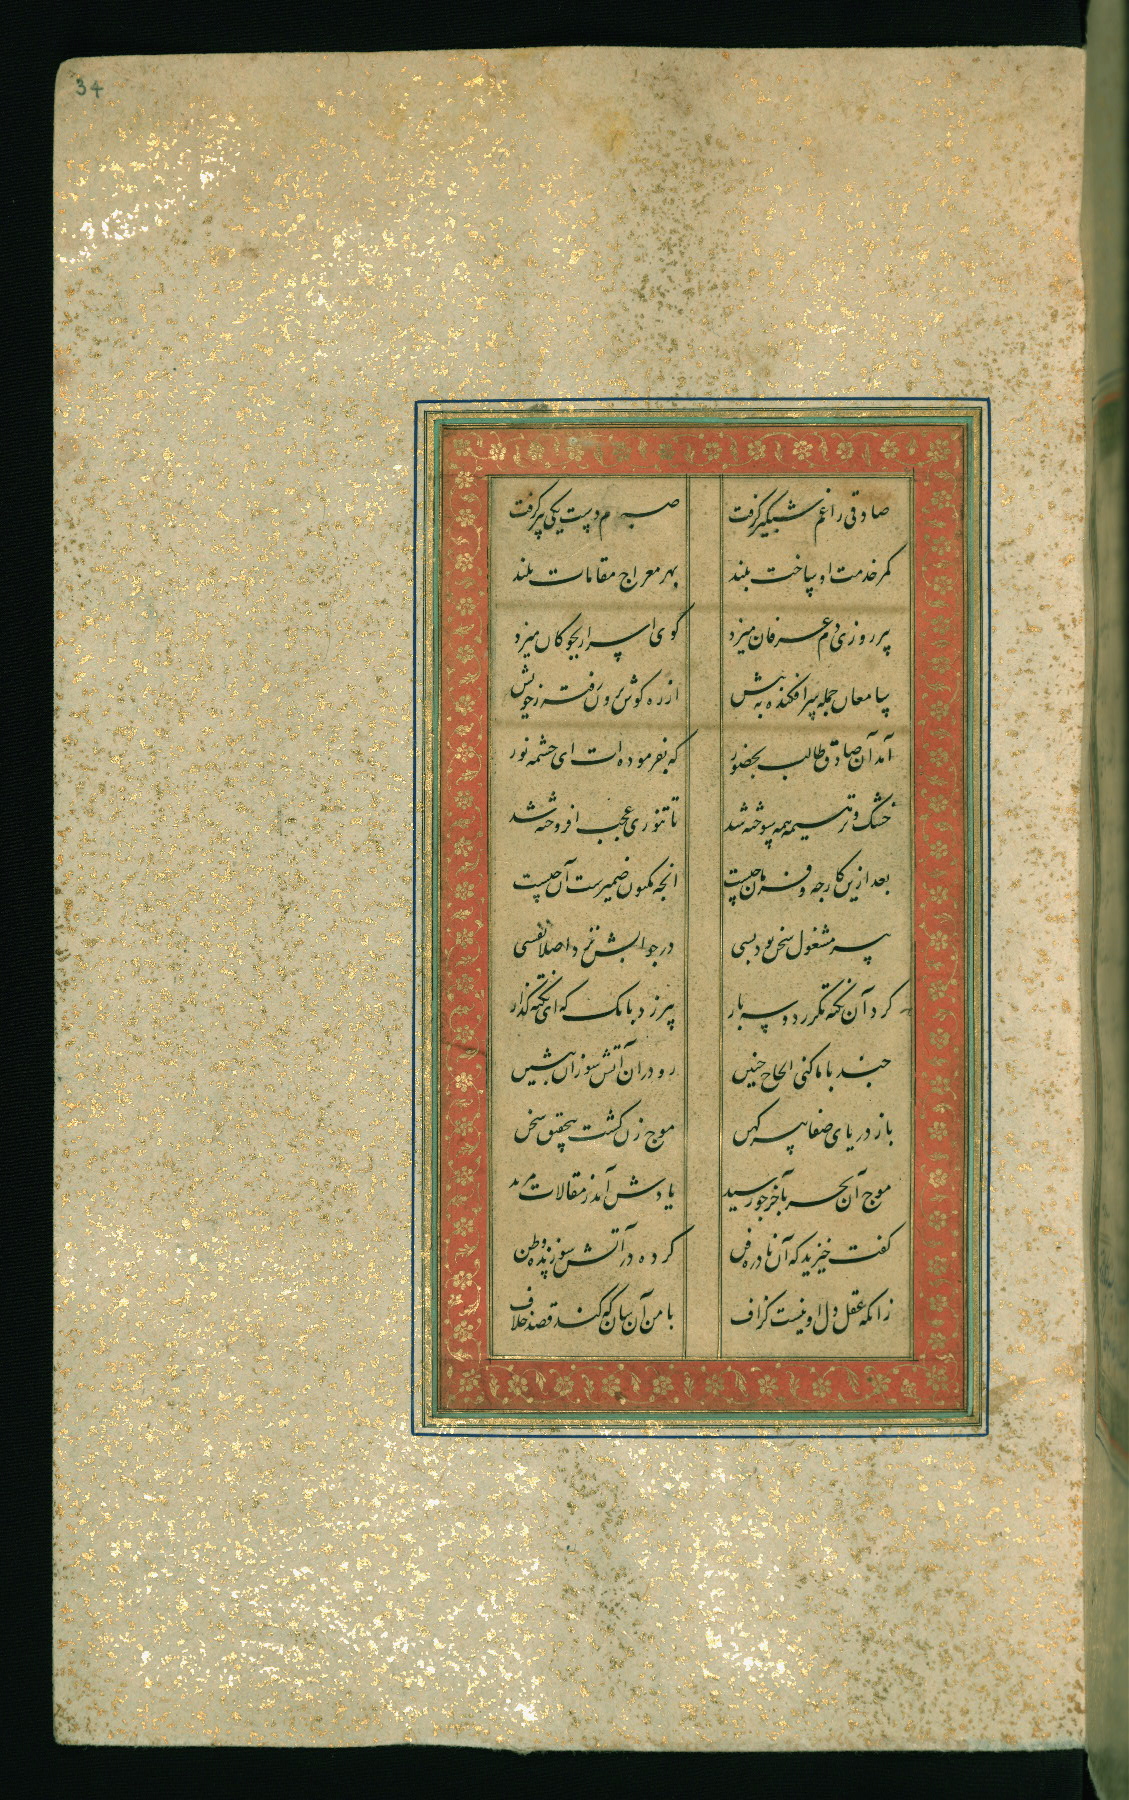 34
صادقی را غم شبگیر گرفت صبحدم دست یکی پیر گرفت
کمر خدمت او ساخت بلند بهر معراج مقامات بلند
پیر روزی دم عرفان میزد گوی اسرار بچوکان میزد
سامعان جمله سر افکنده به پیش از ره گوش برون رفته ز خویش
آمد آن صادق طالب بحضور که بفرموده ات ای چشمه نور
خشک و تر هیمه همه سوخته شد تا تنوری عجب افروخته شد
بعد ازین کار چه و فرمان چیست انچه مکنون ضمیرست آن چیست
پیر مشغول سخن بود بسی در جوابش نزد اصلا نفسی
کرد آن نکته مکرر دو سه بار پیر زد بانک که ای نکته گذار
چند با ما کنی الحاح چنین رو در آن آتش سوزان بنشین
باز دریای صفا پیر کهن موج زن گشت بتحقیق سخن
موج آن بحر بآخر چو رسید یادش آمد ز مقالات مرید
گفت خیزید که آن نادره فن کرده در آتش سوزنده وطن
زانکه عقل و دل او نیست گزاف با من آن سان که کند قصد خلاف